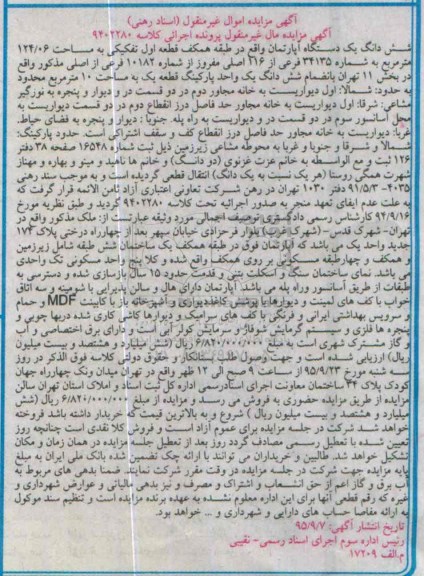 آگهی مزایده اموال غیرمنقول (اسناد رهنی)
آگهی مزایده مال غیرمنقول پرونده اجرائی کلاسه ۹۴۰۲۲۸۰
شش دانگ یک دستگاه آپارتمان واقع در طبقه همکف قطعه اول تفکیکی به مساحت ۱۲۴/۰۶
مترمربع به شماره ۳۴۱۳۵ فرعی از ۱۱۶ اصلی مفروز از شماره ۱۰۱۸۲ فرعی از اصلی مذکور واقع
در بخش ۱۱ تهران بانضمام شش دانگ یک واحد پارکینگ قطعه یک به مساحت ۱۰ مترمربع محدود
به حدود: شمالا: اول دیواریست به خانه مجاور دوم در دو قسمت در و دیوار و پنجره به نورگیر
مشاعی: شرقا: اول دیواریست به خانه مجاور حد فاصل درز انقطاع دوم در دو قسمت دیواریست به
محل آسانسور سوم در دو قسمت در و دیواریست به راه پله. جنوبا: دیوار و پنجره به فضای حیاط.
غربا: دیواریست به خانه مجاور حد فاصل درز انقطاع کف و سقف اشتراکی است. حدود پارکینگ:
شمالا و شرقا و جنوبا و غربا به محوطه مشاعی زیرزمین ذیل ثبت شماره ۱۶۵۴۸ صفحه ۳۸ دفتر
۱۲۶ ثبت و مع الواسطه به خانم عزت غزنوی (دو دانگ) و خانم ها ناهید و مینو و بهاره و مهناز
شهرت همگی روستا (هر یک نسبت به یک دانگ) انتقال قطعی گردیده است و به موجب سند رهنی
۴۰۳۵-۹۱/۵/۳ دفتر ۱۰۳۰ تهران در رهن شرکت تعاونی اعتباری آزاد ثامن الائمه قرار گرفت که
به علت عدم ایفای تعهد منجر به صدور اجرائیه تحت کلاسه ۹۴۰۲۲۸۰ گردید و طبق نظریه مورخ
۹۴/۹/۱۶ کارشناس رسمی دادگستری توصیف اجمالی مورد وثیقه عبارتست از: ملک مذکور واقع در
تهران- شهرک قدس- (شهرک غرب) بلوار فرحزادی خیابان سپهر بعد از چهارراه درختی پلاک ۱۷۴
جدید واحد یک می باشد که آپارتمان فوق در طبقه همکف یک ساختمان شش طبقه شامل زیرزمین
و همکف و چهارطبقه مسکونی بر روی همکف واقع شده و کلا پنج واحد مسکونی تک واحدی
می باشد. نمای ساختمان سنگ و اسکلت بتنی و قدمت حدود ۱۵ سال بازسازی شده و دسترسی به
طبقات از طریق آسانسور وراه پله می باشد. آپارتمان دارای هال و سالن پذیرایی با شومینه و سه اتاق
خواب با کف های لمینت و دیوارها با پوشش کاغذدیواری و آشپزخانه باز با کابینت MDF و حمام
و سرویس بهداشتی ایرانی و فرنگی با کف های سرامیک و دیوارها کاشی کاری شده دربها چوبی و
پنجره ها فلزی و سیستم گرمایش شوفاژ و سرمایش کولر آبی است و دارای برق اختصاصی و آب
و گاز مشترک شهری است به مبلغ ۶/۸۲۰/۰۰۰/۰۰۰ ریال (شش میلیارد و هشتصد و بیست میلیون
ریال) ارزیابی شده است، و جهت وصول طلب بستانکار و حقوق دولتی کلاسه فوق الذکر در روز
سه شنبه مورخ ۹۵/۹/۲۳ از ساعت ۹ صبح الی ۱۲ ظهر واقع در تهران میدان ونک چهارراه جهان
کودک پلاک ۳۴ ساختمان معاونت اجرای اسنادرسمی اداره کل ثبت اسناد و املاک استان تهران سالن
مزایده از طریق مزایده حضوری به فروش می رسد و مزایده از مبلغ ۶/۸۲۰/۰۰۰/۰۰۰ ریال (شش
میلیارد و هشتصد و بیست میلیون ریال) شروع و به بالاترین قیمت که خریدار داشته باشد فروخته
خواهد شد شرکت در جلسه مزایده برای عموم آزاد است و فروش کلا نقدی است چنانچه روز
تعیین شده با تعطیل رسمی مصادف گردد روز بعد از تعطیل جلسه مزایده در همان زمان و مکان
تشکیل خواهد شد. طالبین و خریداران می توانند با ارائه چک تضمین شده بانک ملی ایران به مبلغ
پایه مزایده جهت شرکت در جلسه مزایده در وقت مقرر شرکت نمایند. ضمنا بدهی های مربوط به
آب برق و گاز اعم از حق انشعاب و اشتراک و مصرف و نیز بدهی مالیاتی و عوارض شهرداری و
غیره که رقم قطعی آنها برای این اداره معلوم نشده به عهده برنده مزایده است و تنظیم سند موکول
به ارائه مفاصا حساب های دارایی و شهرداری و ... خواهد بود.
تاریخ انتشار آگهی: ۹۵/۹/۷
رئیس اداره سوم اجرای اسناد رسمی- نقیبی
م.الف ۱۷۲۰۹